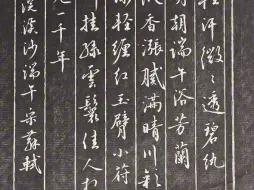 輕汗微〻透碧紈
明朝端午浴芳蘭
流香漲膩滿晴川彩
線輕纏紅玉臂小符
斜挂綠雲鬟佳人相
見一千年
浣溪沙端午宋蘇軾